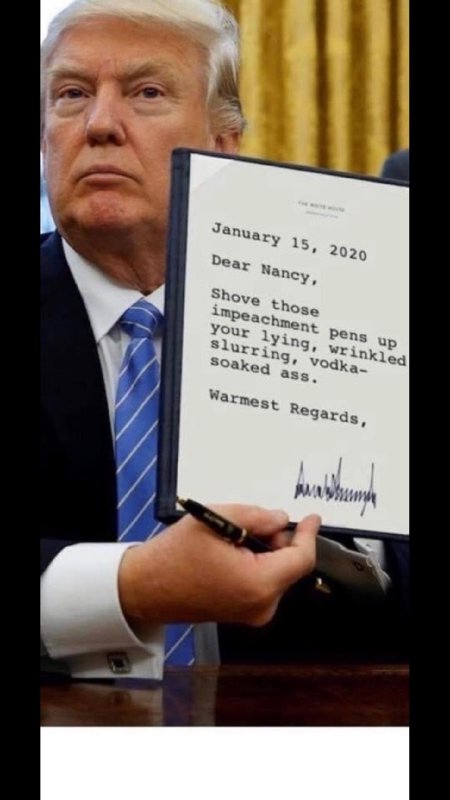 THE WHITE HOUSE
January 15, 2020
Dear Nancy,
Shove those
impeachment pens up
your lying, wrinkled
slurring, vodka-
soaked ass.
Warmest Regards,